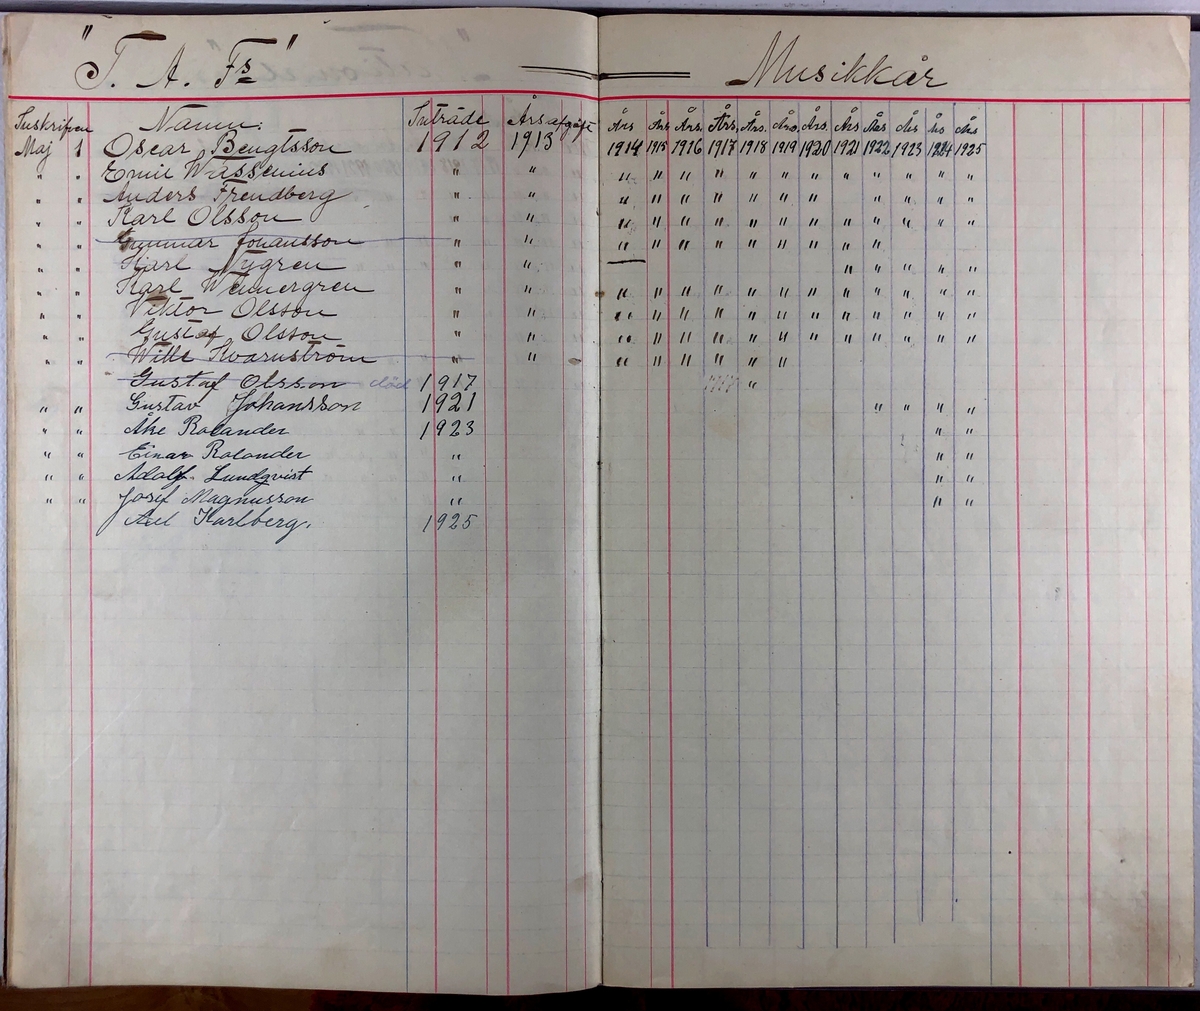 "T. A. Fs" Musikkår
Inskrifven Namn: Inträde Årsafgift Års Års Års. Års. Års. Års. Års. Års Års Års Års Års
Maj 1 Oscar Bengtsson 1912 1913 1914 1915 1916 1917 1918 1919 1920 1921 1922 1923 1924 1925
" " Emil Wassenius " " " " " " " " " " " " " "
" " Anders Frendberg " " " " " " " " " " " " "
" " Karl Olsson " " " " " " " " " " " " " "
" " Gunnar Johansson " " " " " " " " " " "
" " Karl Nygren " " — " " " " "
" " Karl Wennergren " " " " " " " " " " " " " "
" " Viktor Olsson " " " " " " " " " " " " " "
" " Gustaf Olsson " " " " " " " " " " " " " "
" " Wille Kvarnström " " " " " " " "
Gustaf Olsson död 1917 1917 "
" " Gustav Johansson 1921 " " " "
" " Åke Rolander 1923 " "
" " Einar Rolander " " "
" " Adolf Lundqvist " " "
" " Josef Magnusson " " "
Karlberg. 1925